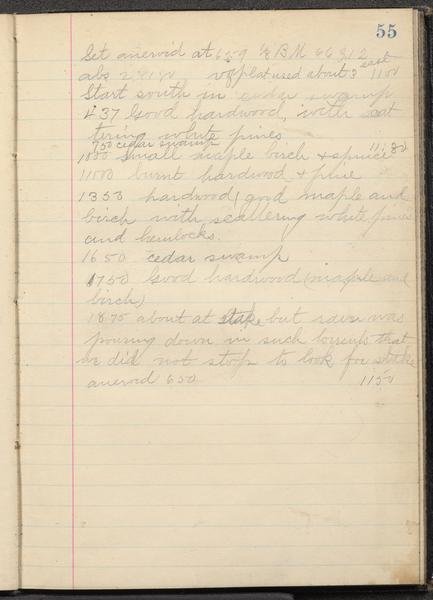 55
Set aneroid at 659 B M 66312
abs about 3 east 1100
Start south in cedar swamp
437 Good hardwood, with scat
tering white pines
750 cedar swamp
1000 Small maple birch & spruce 11:30
1100 burnt hardwood & pine
1353 hardwood, good maple and
birch with scattering white pines
and hemlocks.
1650 cedar swamp
1750 Good hardwood (maple and
birch)
1875 about at stake but rain was
pouring down in such torrents that
we did not stop to look for stake
aneroid 650 1150